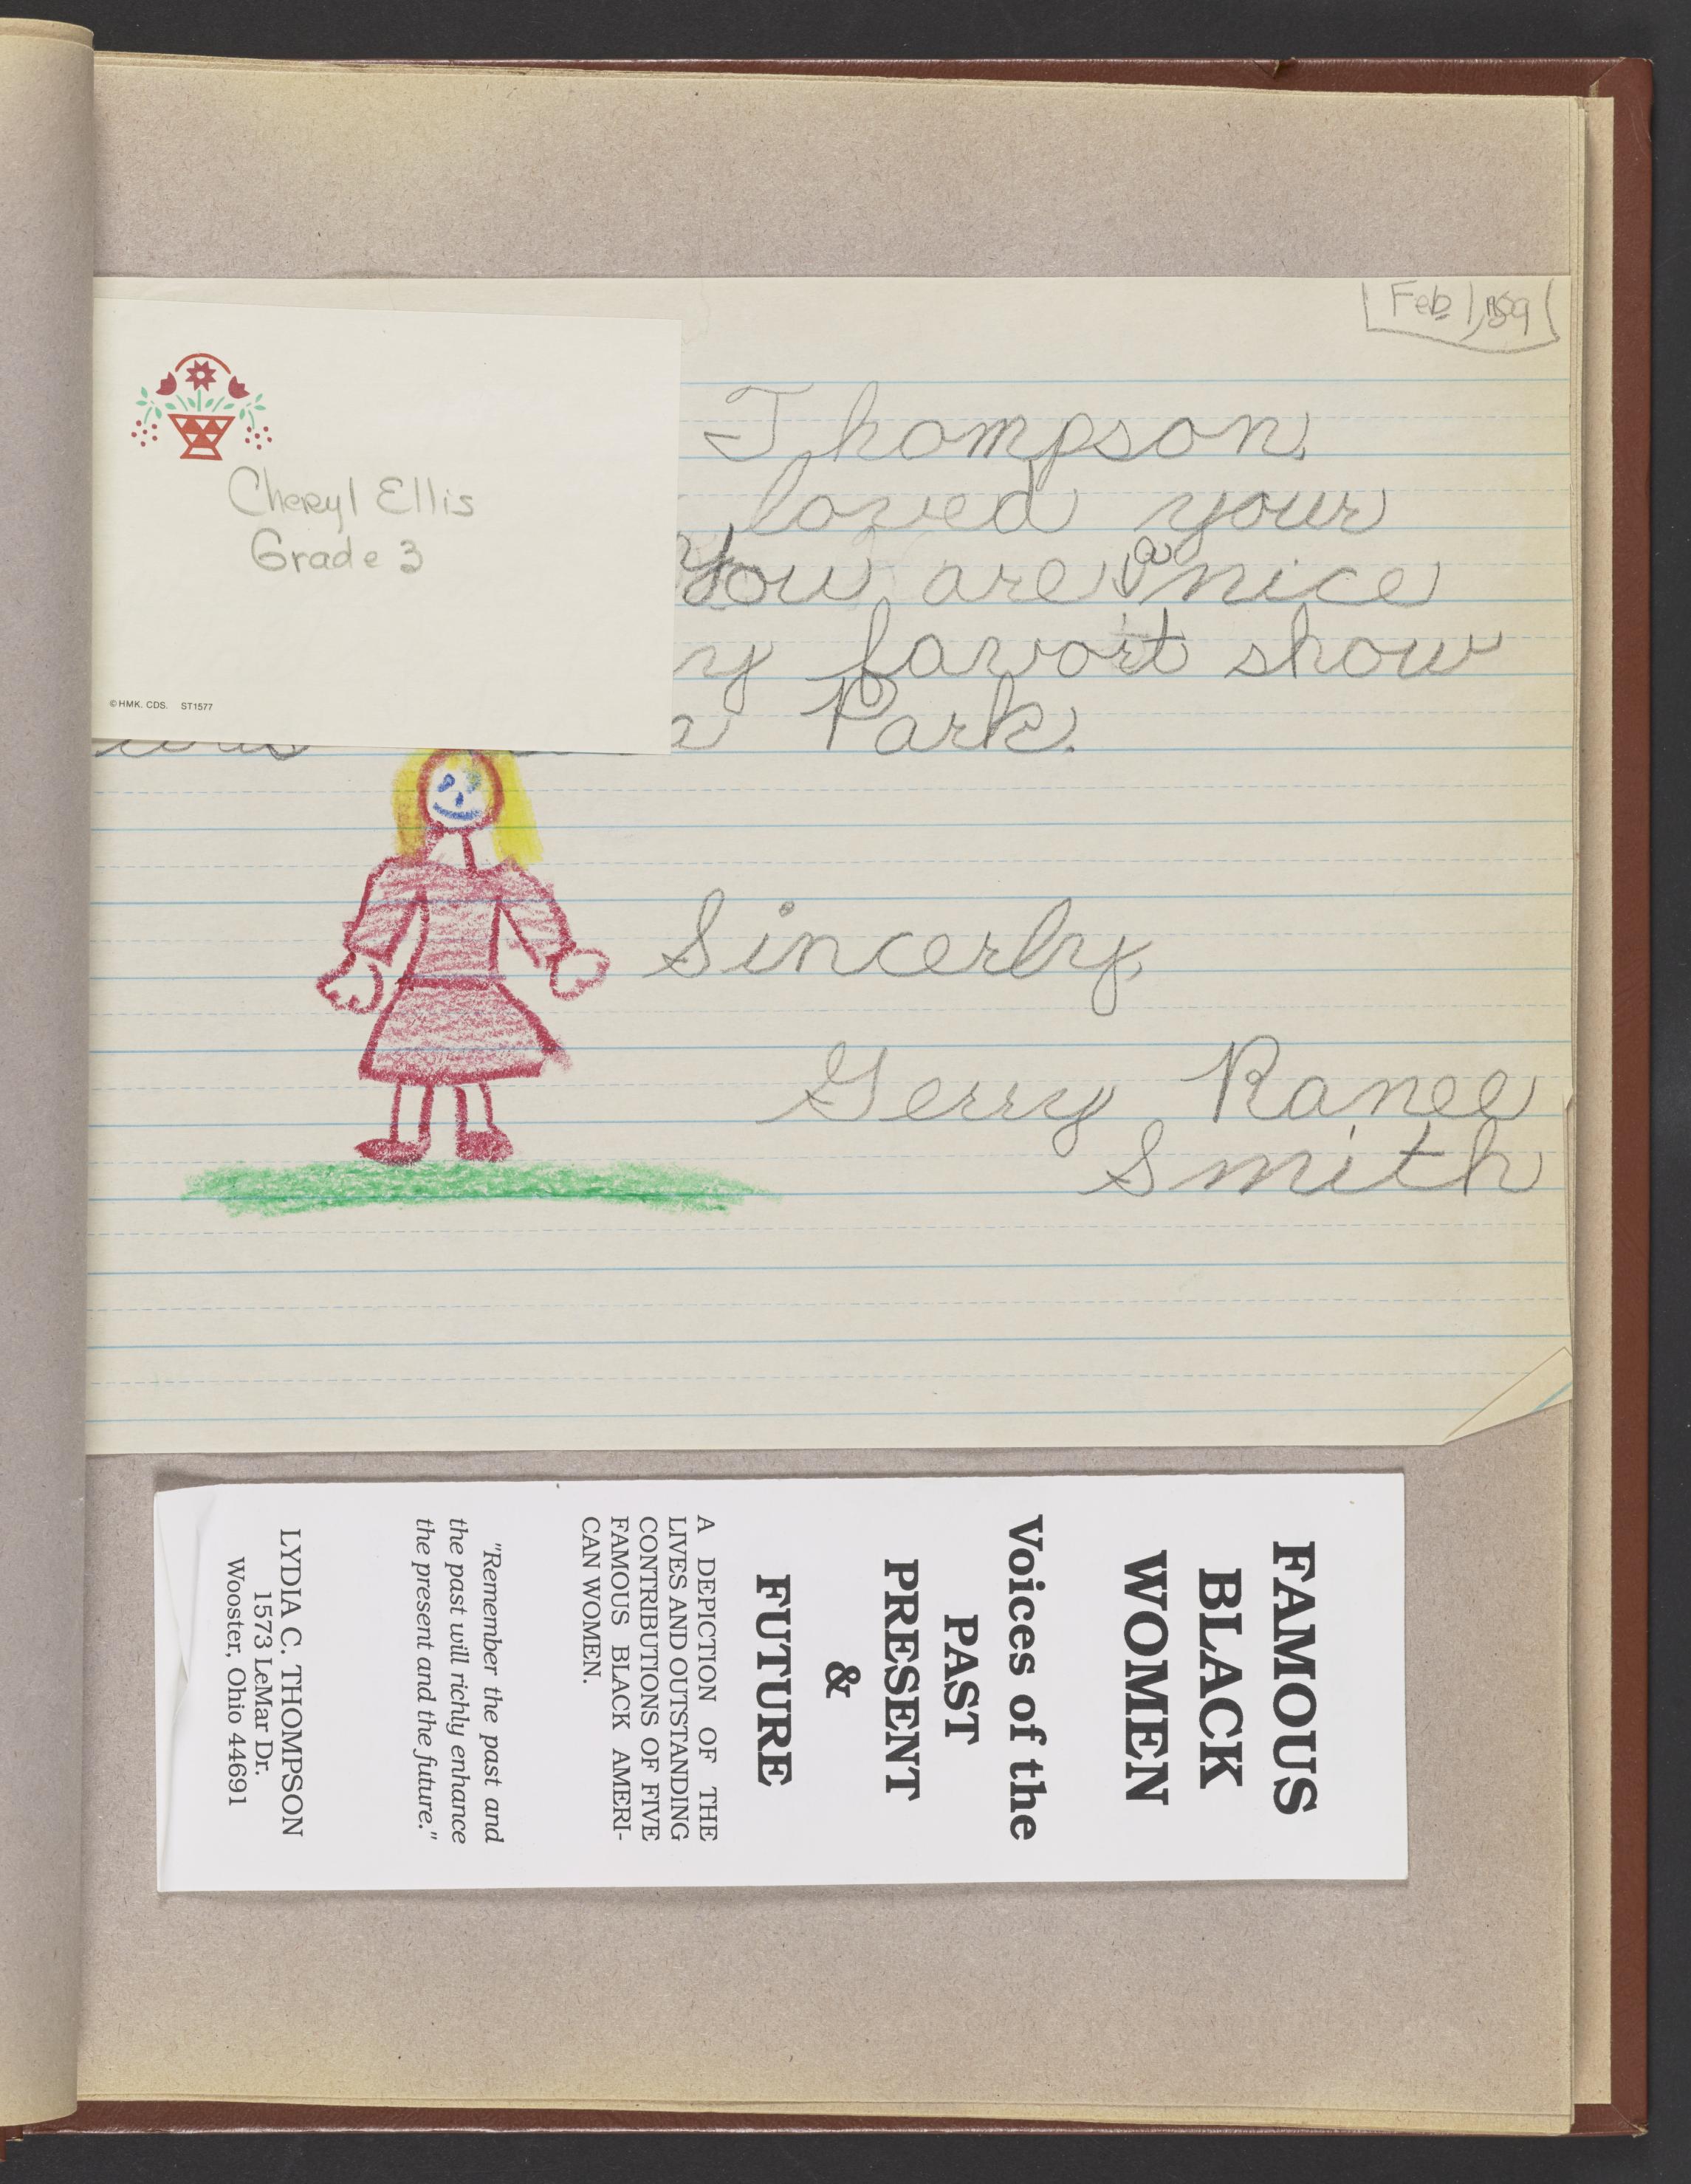 Feb 1, 89
Cheryl Ellis
Grade 3
© HMK. CDS. ST1577
Thompson,
loved your
You are a nice
favorit show
Park.
Sincerly,
Gerry Ranee
Smith
FAMOUS
BLACK
WOMEN
Voices of the
PAST
PRESENT
&
FUTURE
A DEPICTION OF THE
LIVES AND OUTSTANDING
CONTRIBUTIONS OF FIVE
FAMOUS BLACK AMERI-
CAN WOMEN.
"Remember the past and
the past will richly enhance
the present and the future."
LYDIA C. THOMPSON
1573 LeMar Dr.
Wooster, Ohio 44691